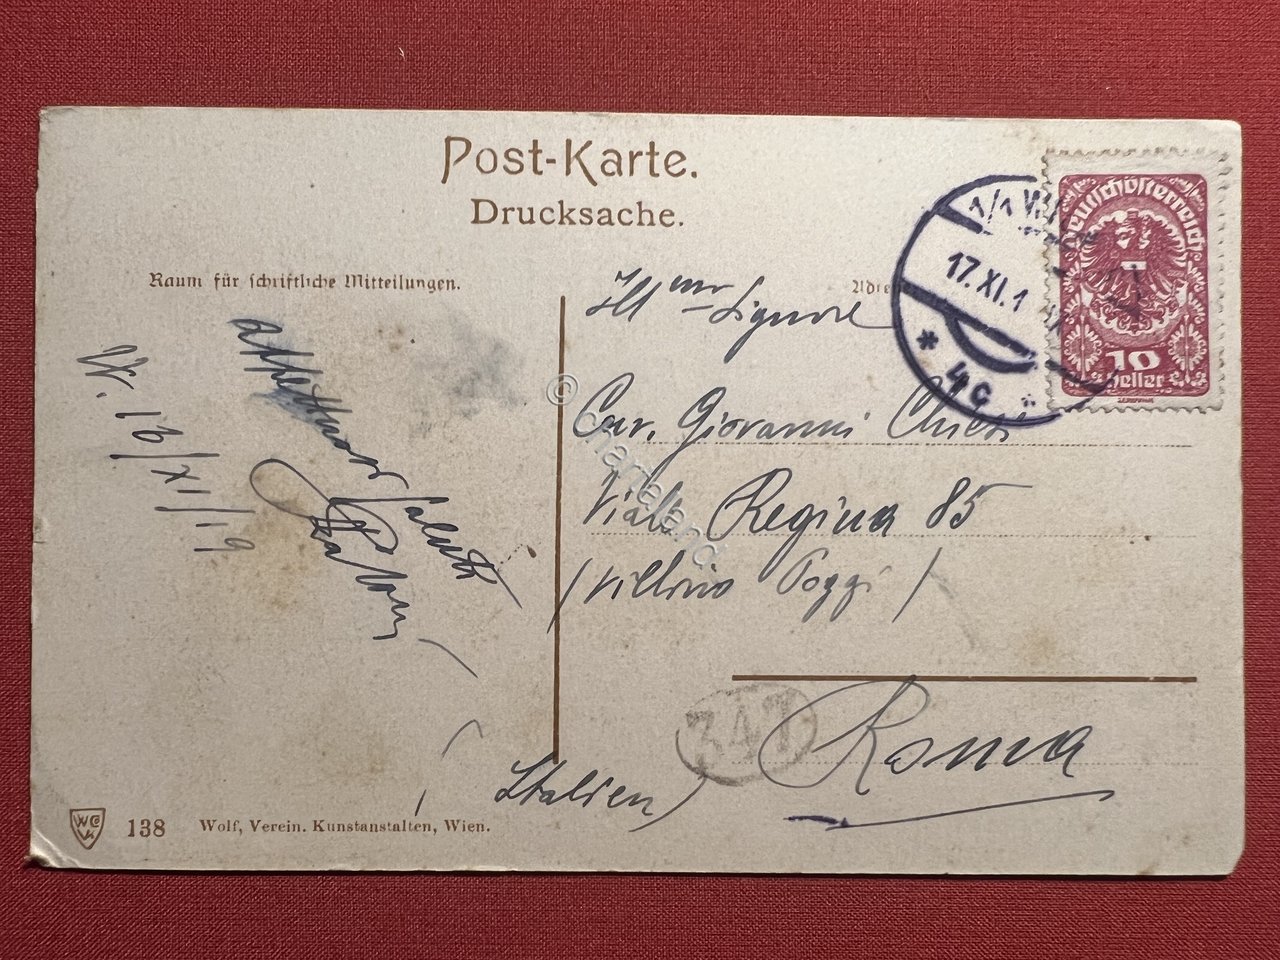 Post-Karte.
Drucksache.
Raum für schriftliche Mitteilungen.
Adre
1/1 WI
17. XI. 1
* 4c *
Deutschösterreich
10
Heller
Ill mo Signore
Cav. Giovanni
Viale Regina 85
(Villino Poggi)
Roma
(Italien)
347
W. 16/XI/19
affettuosi saluti
© Chartaland
WC
138 Wolf, Verein. Kunstanstalten, Wien.